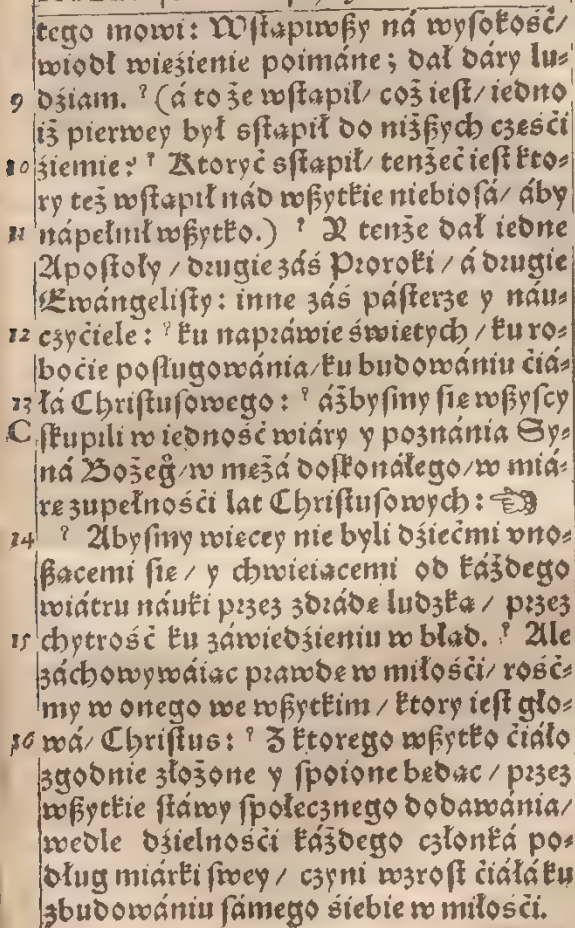 tego mowi: Wſtąpiwßy ná wyſokość/
wiodł więźienie poimáne; dał dáry lu⸗
9 dźiam. ? (á to że wſtąpił/ coż ieſt/ iedno
iż pierwey był sſtąpił do niżßych części
10 źiemie? ? Ktoryć sſtąpił/ tenżeć ieſt kto⸗
ry też wſtąpił nád wßytkie niebioſá/ áby
11 nápełnił wßytko.) ? Y tenże dał iedne
Apoſtoły / drugie záś Proroki / á drugie
Ewángeliſty: inne záś páſterze y náu⸗
12 czyćiele: ? ku napráwie świętych / ku ro⸗
boćie poſługowánia/ ku budowániu ćiá⸗
13 łá Chriſtuſowego: ? áżbyſmy ſię wßyſcy
C ſkupili w iedność wiáry y poznánia Sy⸗
ná Bożeg̊/ w mężá doſkonáłego/ w miá⸗
rę zupełnośći lat Chriſtuſowych: ☜
14 ? Abyſmy więcey nie byli dźiećmi vno⸗
ßącemi ſię / y chwieiącemi od káżdego
wiátru náuki przez zdrádę ludzką / przez
15 chytrość ku záwiedźieniu w błąd. ? Ale
záchowywáiąc prawdę w miłośći/ rość⸗
my w onego we wßytkim / ktory ieſt gło⸗
16 wá/ Chriſtus: ? Z ktorego wßytko ćiáło
zgodnie złożone y ſpoione będąc / przez
wßytkie ſtáwy ſpołecznego dodawánia/
wedle dźielnośći káżdego członká po⸗
dług miárki ſwey / czyni wzroſt ćiáłá ku
zbudowániu ſámego śiebie w miłośći.